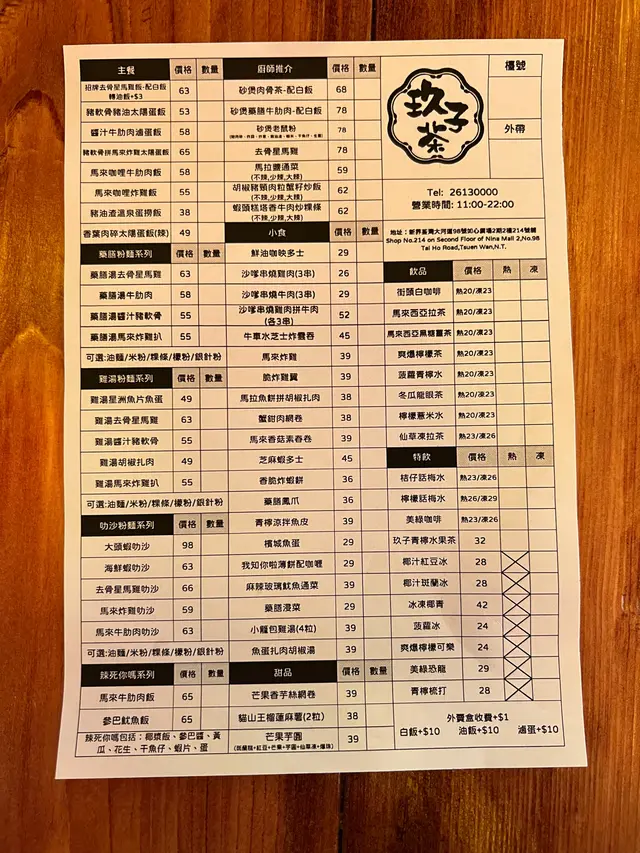 主餐 價格 數量
招牌去骨星馬雞飯-配白飯
轉油飯+$3 63
豬軟骨豬油太陽蛋飯 53
醬汁牛肋肉滷蛋飯 58
豬軟骨拼馬來炸雞太陽蛋飯 65
馬來咖哩牛肋肉飯 58
馬來咖哩炸雞飯 55
豬油渣溫泉蛋撈飯 38
香葉肉碎太陽蛋飯(辣) 49
藥膳粉麵系列 價格 數量
藥膳湯去骨星馬雞 63
藥膳湯牛肋肉 58
藥膳湯醬汁豬軟骨 55
藥膳湯馬來炸雞扒 55
可選:油麵/米粉/粿條/檬粉/銀針粉
雞湯粉麵系列 價格 數量
雞湯星洲魚片魚蛋 49
雞湯去骨星馬雞 63
雞湯醬汁豬軟骨 55
雞湯胡椒扎肉 49
雞湯馬來炸雞扒 55
可選:油麵/米粉/粿條/檬粉/銀針粉
叻沙粉麵系列 價格 數量
大頭蝦叻沙 98
海鮮蝦叻沙 63
去骨星馬雞叻沙 66
馬來炸雞叻沙 59
馬來牛肋肉叻沙 63
可選:油麵/米粉/粿條/檬粉/銀針粉
辣死你嗎系列 價格 數量
馬來牛肋肉飯 65
參巴魷魚飯 65
辣死你嗎包括：椰漿飯、參巴醬、黃
瓜、花生、干魚仔、蝦片、蛋
廚師推介 價格 數量
砂煲肉骨茶-配白飯 68
砂煲藥膳牛肋肉-配白飯 78
砂煲老鼠粉 78
去骨星馬雞 78
馬拉盞通菜
(不辣,少辣,大辣) 59
胡椒豬頸肉粒蟹籽炒飯
(不辣,少辣,大辣) 62
蝦頭糕塔香牛肉炒粿條
(不辣,少辣,大辣) 62
小食 價格 數量
鮮油咖映多士 29
沙嗲串燒雞肉(3串) 26
沙嗲串燒牛肉(3串) 29
沙嗲串燒雞肉拼牛肉
(各3串) 52
牛車水芝士炸雲吞 45
馬來炸雞 39
脆炸雞翼 39
馬拉魚餅拼胡椒扎肉 38
蟹鉗肉網卷 38
馬來香菇素春卷 39
芝麻蝦多士 45
香脆炸蝦餅 36
藥膳鳳爪 36
青檸涼拌魚皮 39
檳城魚蛋 29
我知你啦薄餅配咖喱 29
麻辣玻璃魷魚通菜 39
藥膳浸菜 29
小籠包雞湯(4粒) 39
魚蛋扎肉胡椒湯 39
甜品 價格 數量
芒果香芋絲網卷 39
貓山王榴蓮麻薯(2粒) 38
芒果芋圓
(斑蘭糕+紅豆+芒果+芋圓+仙草凍+爆珠) 39
玖子茶
檯號
外帶
Tel: 26130000
營業時間: 11:00-22:00
地址：新界荃灣大河道98號如心廣場2期2樓214號舖
Shop No.214 on Second Floor of Nina Mall 2,No.98
Tai Ho Road,Tsuen Wan,N.T.
飲品 價格 熱 凍
街頭白咖啡 熱20/凍23
馬來西亞拉茶 熱20/凍23
馬來西亞黑糖薑茶 熱20/凍23
爽爆檸檬茶 熱20/凍23
菠蘿青檸水 熱20/凍23
冬瓜龍眼茶 熱20/凍23
檸檬薏米水 熱20/凍23
仙草凍拉茶 熱23/凍26
特飲 價格 熱 凍
桔仔話梅水 熱23/凍26
檸檬話梅水 熱26/凍29
美綠咖啡 熱23/凍26
玖子青檸水果茶 32
椰汁紅豆冰 28
椰汁斑蘭冰 28
冰凍椰青 42
菠蘿冰 24
爽爆檸檬可樂 24
美綠恐龍 29
青檸梳打 28
外賣盒收費+$1
白飯+$10 油飯+$10 滷蛋+$10